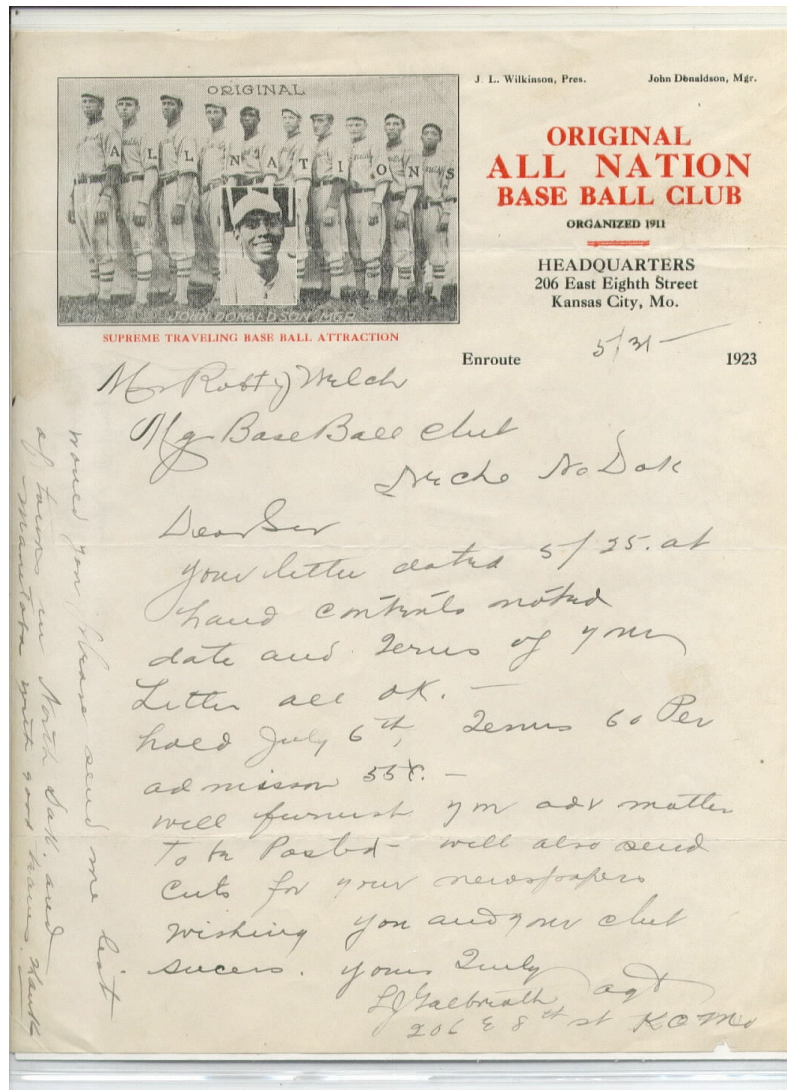 ORIGINAL
ALL NATIONS
JOHN DONALDSON, MGR
SUPREME TRAVELING BASE BALL ATTRACTION
J. L. Wilkinson, Pres. John Donaldson, Mgr.
ORIGINAL
ALL NATION
BASE BALL CLUB
ORGANIZED 1911
HEADQUARTERS
206 East Eighth Street
Kansas City, Mo.
Enroute 5/31 1923
Mr Robt J Welch
Mg Base Ball club
Neche No Dak
Dear Sir
your letter dated 5/25. at
hand contents noted
date and Terms of your
Letter all OK. —
hold July 6th, Terms 60 Per
admisson 55¢. —
will furnish you adv matter
To be Posted - will also send
cuts for your newspapers
wishing you and your club
sucess. yours Truly
L J Galbriath agt
206 E 8th st K C Mo
would you please send me list
of towns in North Dak. and
Manitoba with good teams. thanks